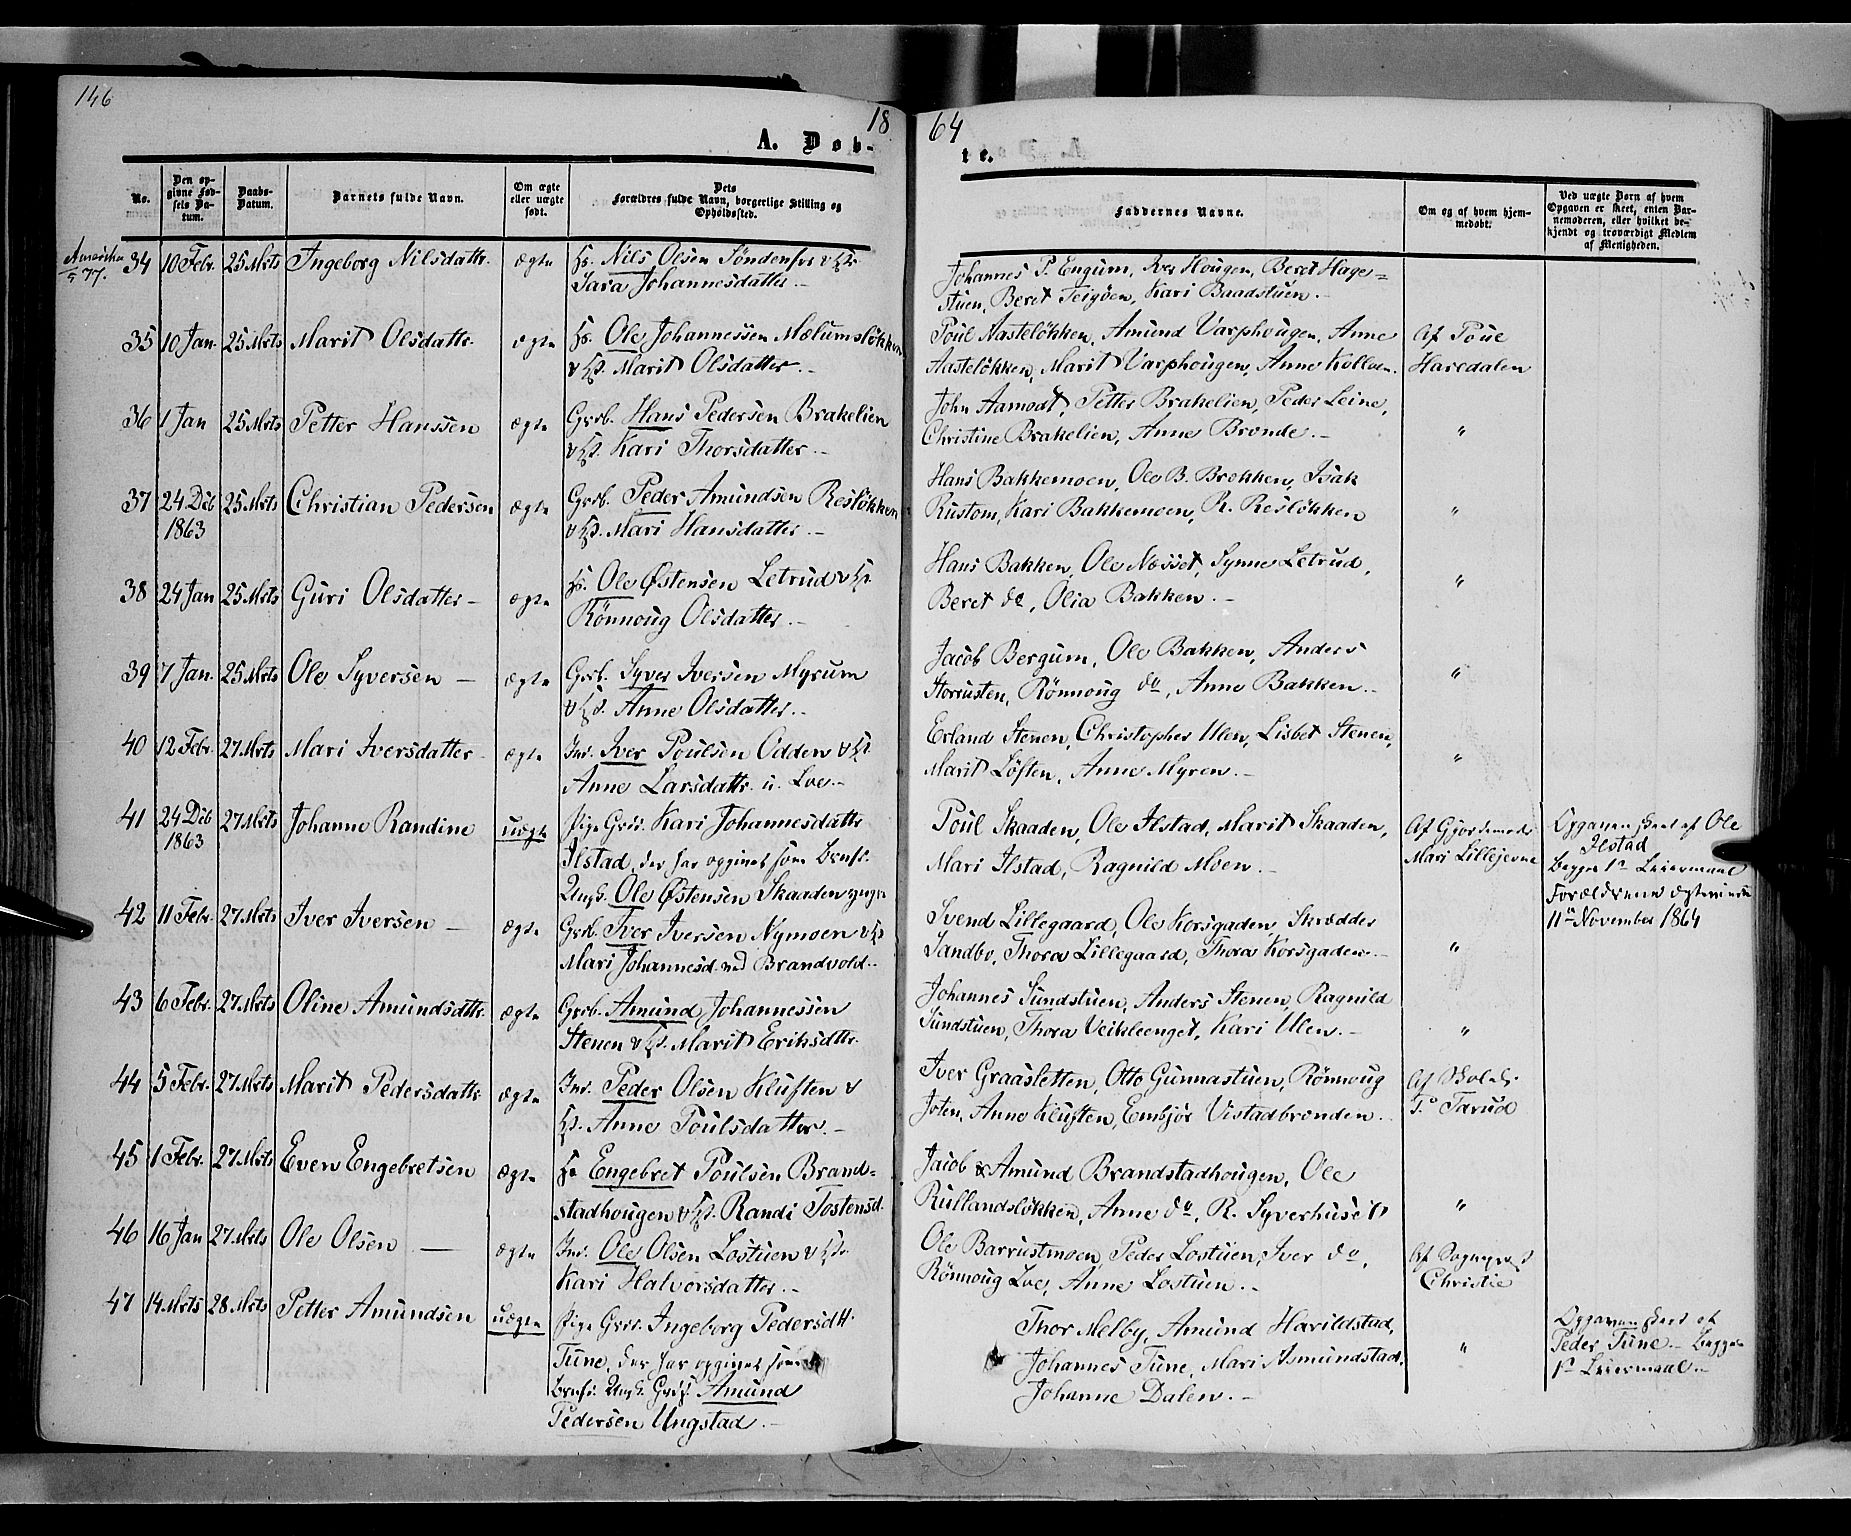 146
1864
A. Døbte.
No.
Den op-
givne Fød-
sels Da-
tum.
Daabs-
Datum.
Barnets fulde Navn.
Om ægte
eller uægte
født.
Dets
Forældres fulde Navn, borgerlige Stilling og
Opholdssted.
Faddernes Navne.
Om og af hvem hjem-
medøbt.
Ved uægte Børn af hvem
Opgaven er skeet, enten Bar-
nemoderen, eller hvilket be-
kjendt og troværdigt Medlem
af Menigheden.
Amerika
5/77.
34 10 Febr. 25 Mrts Ingeborg Nilsdattr. ægte Nils Olsen
Sara Johannesdatter.-
Johannes P. Engum, Iver Hougen, Beret Hage=
stuen, Beret Teigøen, Kari Baadstuen.-
35 10 Jan. 25 Mrts Marit Olsdattr. ægte Hs. Ole Johannessen Mælumsløkken
v H. Marit Olsdatter.-
Poul Aasteløkken, Amund Varphougen, Anne
Aasteløkken, Marit Varphougen, Anne Kolloen.
Af Poul
Haredalen
36 1 Jan 25 Mrts Petter Hanssen ægte Grb. Hans Pedersen Brakelien
v H. Kari Thorsdatter.-
John Aamodt, Petter Brakelien, Peder Leine,
Christine Brakelien, Anne Bronde.-
"
37 24 Deb 25 Mrts Christian Pedersen ægte Grb. Peder Amundsen Resløkken
1863 v H. Mari Hansdatter.-
Hans Bakkemoen, Ole B. Brekken, Isak
Rustom, Kari Bakkemoen, R. Resløkken
"
38 24 Jan 25 Mrts Guri Olsdatter - ægte Hs. Ole Østensen Letrud v H.
Rønnoug Olsdatter.-
Hans Bakken, Ole Næsset, Synne Letrud,
Beret do, Olia Bakken.-
"
39 7 Jan. 25 Mrts Ole Syversen - ægte Grb. Syver Iversen Myrum
v H. Anne Olsdatter.-
Jacob Bergum, Ole Bakken, Anders
Storrusten, Rønnoug do, Anne Bakken.-
"
40 12 Febr. 27 Mrts Mari Iversdatter ægte Ind. Iver Poulsen Odden v H.
Anne Larsdattr. u. Loe.-
Erland Stenen, Christopher Ulen, Lisbet Stenen,
Marit Løften, Anne Myren.-
"
41 24 Deb 27 Mrts Johanne Randine uægte Pige Grds. Kari Johannesdattr
1863 Ilstad, der har opgivet som Barnf.
Ungk. Ole Østensen Skaaden
Poul Skaaden, Ole Ilstad, Marit Skaaden,
Mari Ilstad, Ragnild Moen.-
Af Gjordemoder
Mari Lillejevne
Opgaven skeet af Ole
Ilstad
begges 1ste Leiermaal
Forældrene ægteviede
11te November 1864
42 11 Febr. 27 Mrts Iver Iversen - ægte Grb. Iver Iversen Nymoen v H
Mari Johannesd. ned Brandvold.-
Svend Lillegaard, Ole Korsgaden, Skrædder
Sandbo, Thora Lillegaard, Thora Korsgaden.-
"
43 6 Febr. 27 Mrts Oline Amundsdttr. ægte Grb. Amund Johannessen
Stenen v H. Marit Eriksdttr.
Johannes Sundstuen, Anders Stenen, Ragnild
Sundstuen, Thora Veikleenget, Kari Ulen.-
"
44 5 Febr. 27 Mrts Marit Pedersdattr. ægte Ind. Peder Olsen Kluften v
H. Anne Poulsdatter.-
Iver Graasletten, Otto Gunnastuen, Rønnoug
Joten, Anne Kluften, Embjør Vistadbrenden.
Af Skolel.
P. Tarud
45 1 Febr. 27 Mrts Even Engebretsen ægte Hs Engebret Poulsen Brand=
stadhougen v H. Randi Tostensd.
Jacob & Amund Brandstadhougen, Ole
Rullandsløkken, Anne do, R. Syverhuset
"
46 16 Jan 27 Mrts Ole Olsen - ægte Ind. Ole Olsen Lostuen v H.
Kari Halvorsdatter.-
Ole Barrustmoen, Peder Lostuen, Iver do,
Rønnoug Loe, Anne Lostuen.-
Af Sogneprest
Christie
47 14 Mrts 28 Mrts Petter Amundsen uægte Pige Grds. Ingeborg Pedersdtt.
Tune, der har opgivet som
Barnf. Ungk. Grds. Amund
Pedersen Ungstad.-
Thor Melby, Amund Harildstad,
Johannes Tune, Mari Asmundstad,
Johanne Dalen.-
"
Opgaven skeet af
Peder Tune - begges
1ste Leiermaal.-